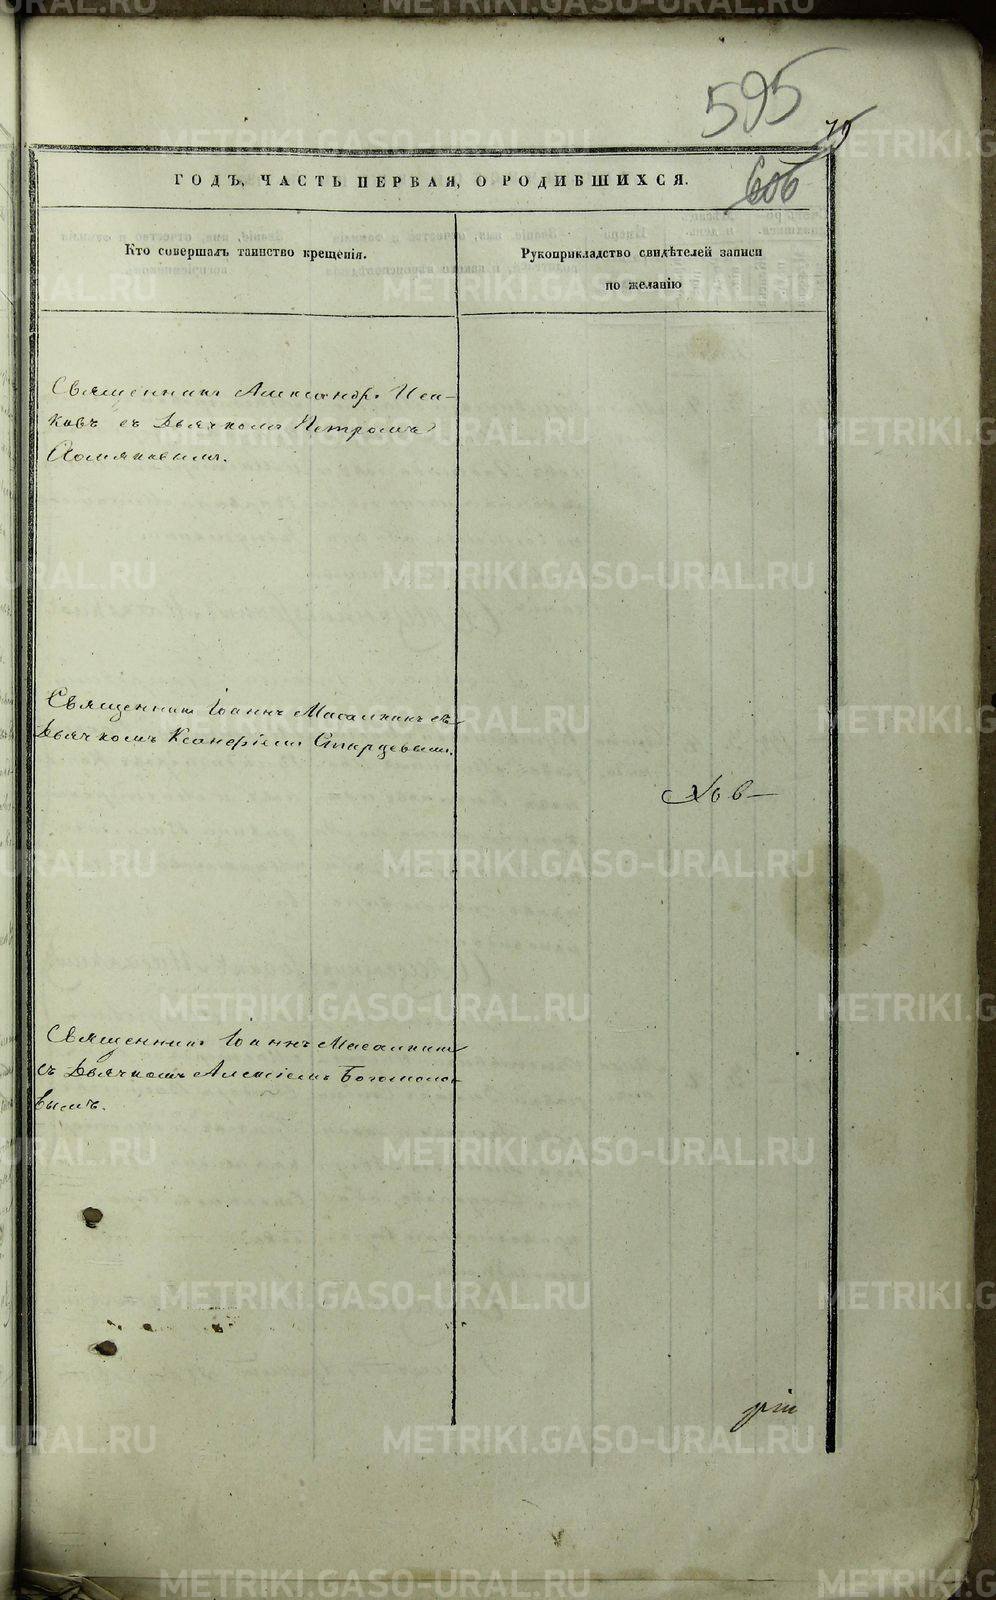 595
79
606
ГОДЪ, ЧАСТЬ ПЕРВАЯ, О РОДИВШИХСЯ.
Кто совершалъ таинство крещенія.
Рукоприкладство свидѣтелей записи
по желанію
Священникъ Александръ Иса-
ковъ съ Дьячкомъ Петромъ
Хомяковымъ.
Священникъ Іоаннъ Масалкинъ съ
Дьячкомъ Ксанфіемъ Старцевымъ.
Священникъ Іоаннъ Масалкинъ
съ Дьячкомъ Алексіемъ Богомоло-
вымъ.
METRIKI.GASO-URAL.RU